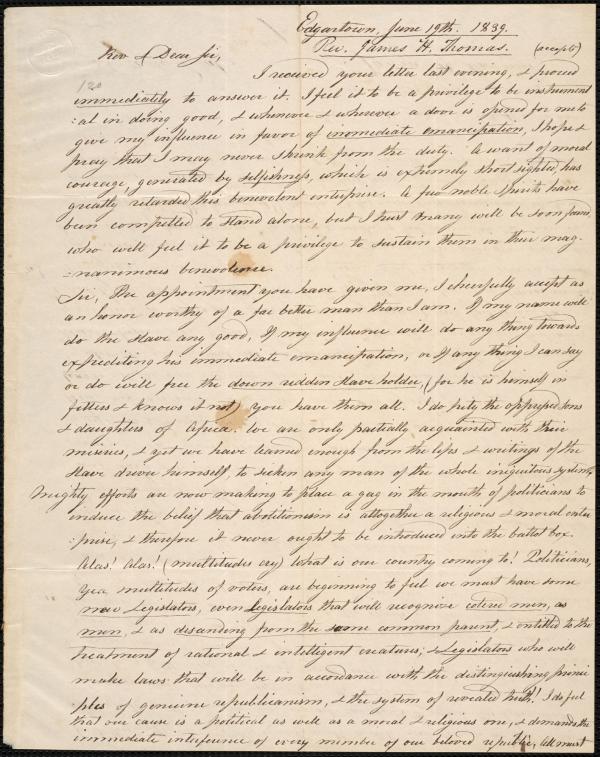 Edgartown, June 19th. 1839.
Rev. James H. Thomas. (accepts)
Rev & Dear Sir,
I received your letter last evening, & proceed
120
immediatitly to answer it. I feel it to be a privilege to be instrument
:al in doing good, & whenever & wherever a door is opened for me to
give my influence in favor of immediate emancipation, I hope &
pray that I may never shrink from the duty. A want of moral
courage, generated by selfishness, which is extremely short sighted, has
greatly retarded this benevolent enterprise. A few noble spirits have
been compelled to stand alone, but I trust many will be soon found,
who will feel it to be a privilege to sustain them in their mag-
:nanimous benevolence.
Sir, The appointment you have given me, I cheerfully accept as
an honor worthy of a far better man than I am. If my name will
do the slave any good, If my influence will do any thing towards
expediting his immediate emancipation, or if any thing I can say
or do will free the down ridden slave holder, (for he is himself in
fetters & knows it not) you have them all. I do pity the oppressed sons
& daughters of Africa. We are only partially acquainted with their
miseries, & yet we have learned enough from the lips & writings of the
slave driver himself, to sicken any man of the whole iniquitous system.
Mighty efforts are now making to place a gag in the mouth of politicians to
induce the belief that abolitionism is altogether a religious & moral enter
:prise, & therefore it never ought to be introduced into the ballot box.
Alas! Alas! (multitudes cry) what is our country coming to! Politicians,
yea multitudes of voters, are beginning to feel we must have some
new Legislators, even Legislators that will recognise colered men, as
men, & as descending from the same common parent, & entitled to the
treatment of rational & intelligent creatures; & Legislators who will
make laws that will be in accordance with the distinguishing princi
:ples of genuine republicanism, & the system of revealed truth! I do feel
that our cause is a political as well as a moral & religious one, & demands the
immediate interference of every member of our beloved republic, All must